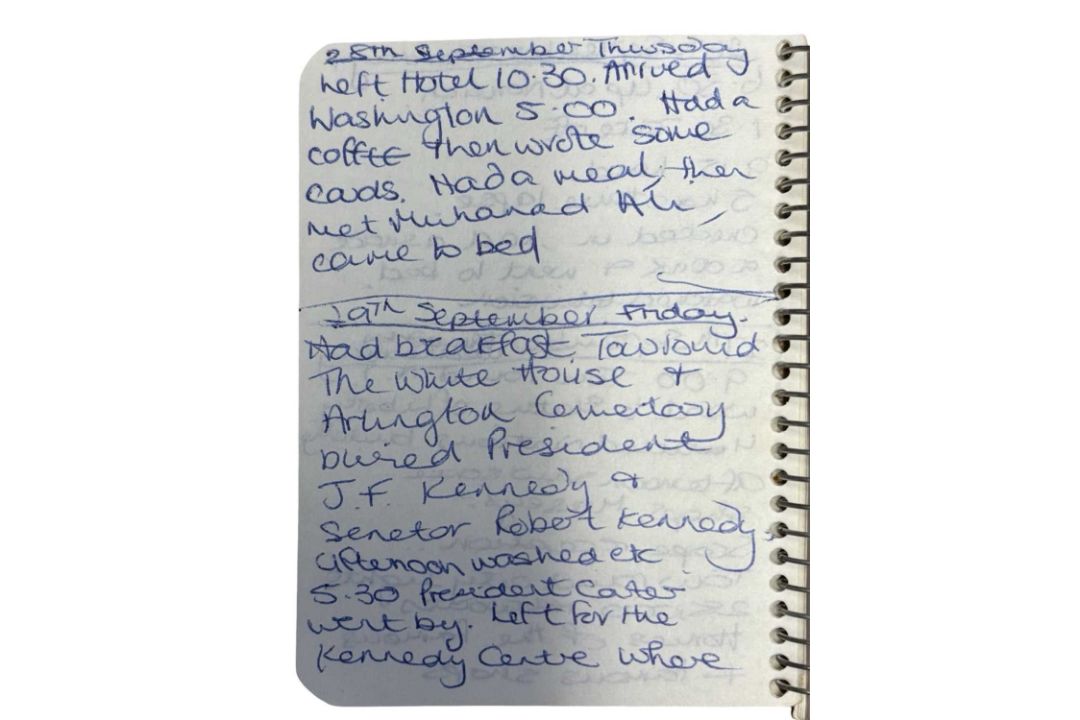 28th September Thursday
Left Hotel 10.30. Arrived
Washington 5.00. Had a
coffee then wrote some
cads. Had a meal, then
met Muhamad Ali,
came to bed
29th September. Friday.
Had breakfast. Tour round
The White House &
Arlington Cemetary
buired President
J.F. Kennedy &
Senetor Robert Kennedy,
afternoon washed etc
5.30 President Carter
went by. Left for the
Kennedy Centre where